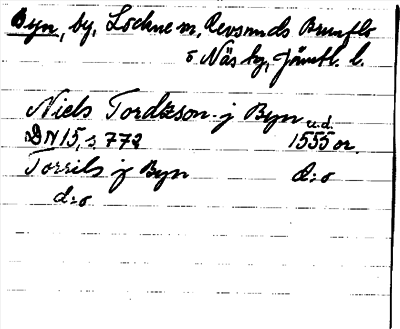 Byn, by, Lockne sn, Revsunds Brunflo
o Näs tg, Jämtl. l.
Niels Tordzson j Byn u.d.
DN 15, s 772 1555 or.
Torrils j Byn d:o
d:o